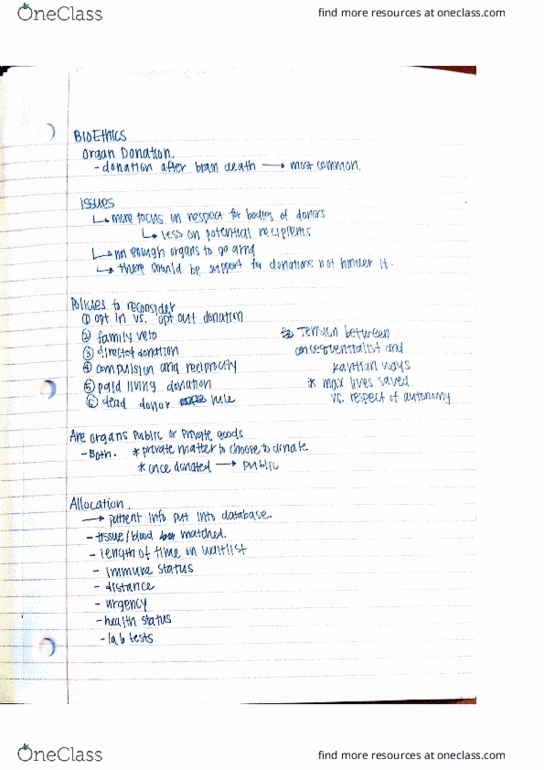 OneClass
find more resources at oneclass.com
BIOETHICS
Organ Donation.
- donation after brain death → most common.
issues
↳ more focus on respect for bodies of donors
↳ less on potential recipients
↳ not enough organs to go arnd
↳ there should be support for donations not hinder it.
Policies to reconsider
① opt in vs. opt out donation
② family veto
③ directed donation
④ compulsion and reciprocity
⑤ paid living donation
⑥ dead donor rule
Tension between
consequentialist and
kantian ways
* max lives saved
vs. respect of autonomy
Are organs public or private goods
- Both. * private matter to choose to donate
* once donated → public
Allocation.
→ patient info put into database
- tissue/blood matched.
- length of time on waitlist
- immune status
- distance
- urgency
- health status
- lab tests
OneClass
find more resources at oneclass.com